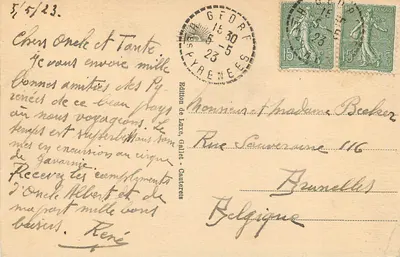 5/5/23.
Chers Oncle et Tante.
Je vous envoie mille
bonnes amitiés des Py
rénées de ce beau pays
où nous voyageons. Le
temps est superbe. Nous som
mes en excursion au cirque
de Gavarnie.
Recevez les compliments
d'Oncle Albert et de
ma part mille bons
baisers.
René
Edition de Luxe, Cauterets
GEDRE
15 30
5-5
23
PYRENEES
15
15
Monsieur et Madame Becker
Rue Souveraine 116
Bruxelles
Belgique